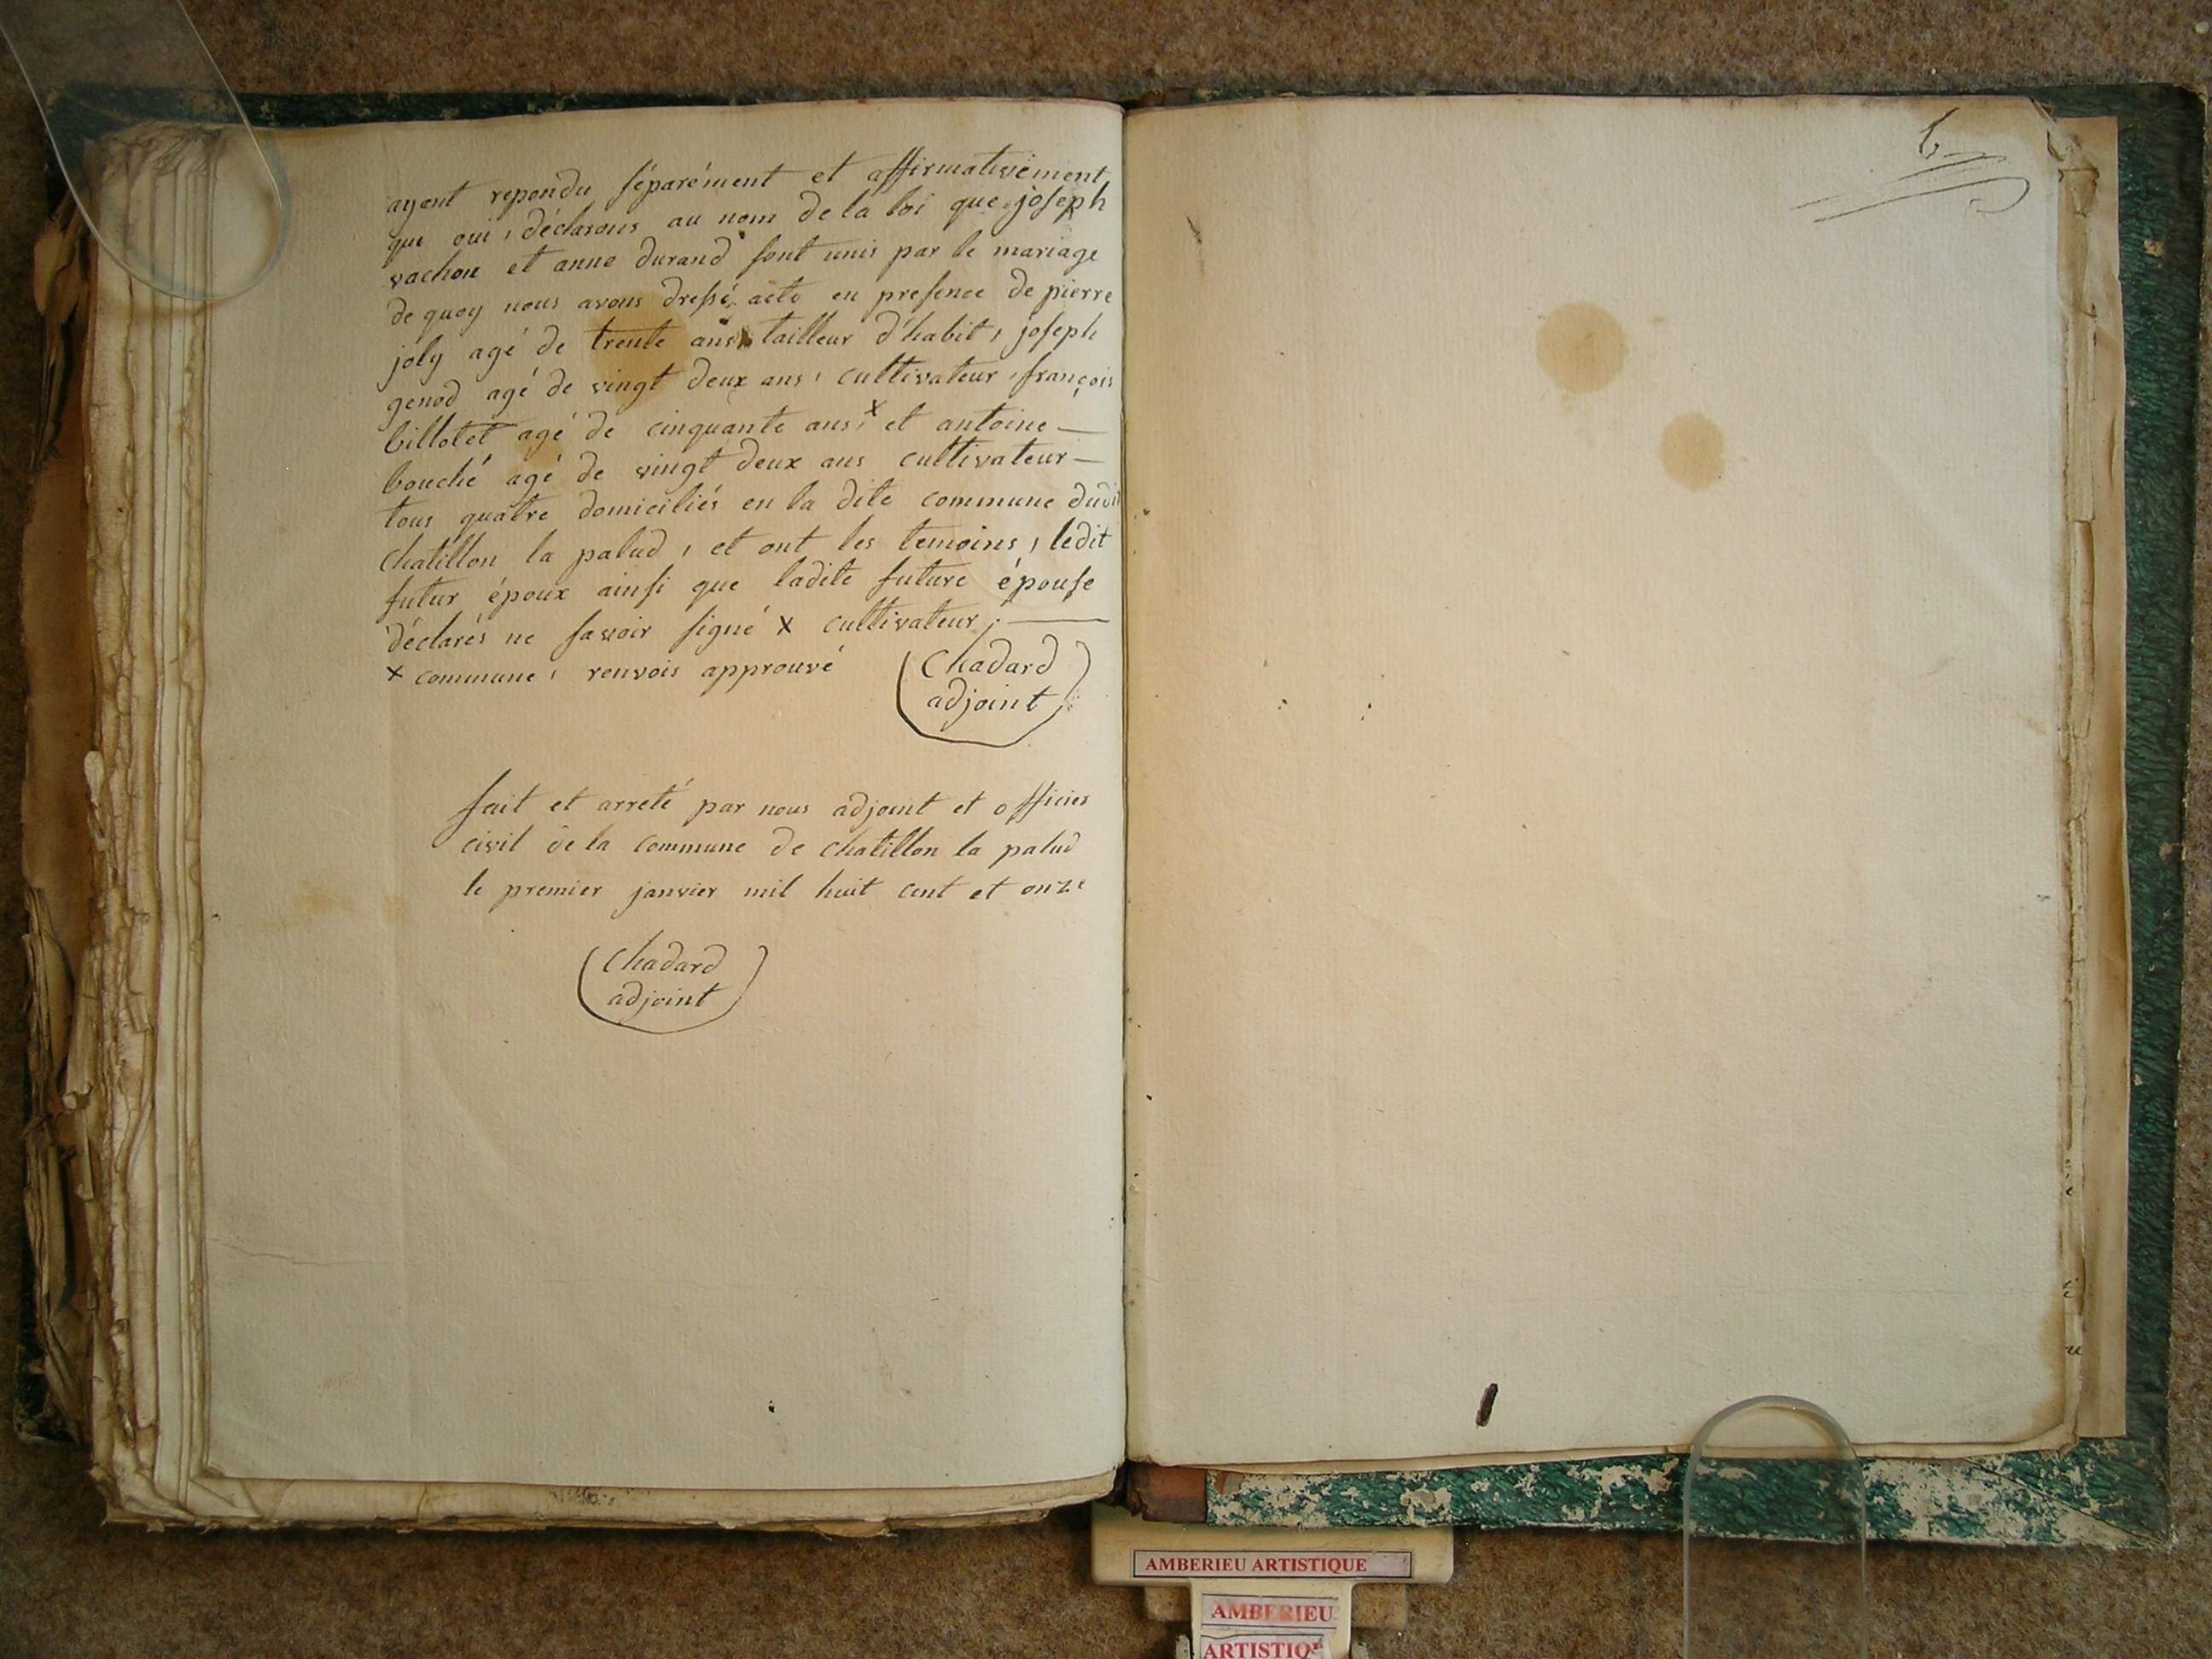 ayent repondu séparément et affirmativement
que oui, déclarons au nom de la loi que joseph
vachon et anne durand sont unis par le mariage
de quoy nous avons dressé acte en presence de pierre
joly agé de trente ans, tailleur d'habit, joseph
genod agé de vingt deux ans, cultivateur, françois
billotet agé de cinquante ans, x et antoine —
bouché agé de vingt deux ans cultivateur —
tous quatre domiciliés en la dite commune dudit
chatillon la palud, et ont les temoins, ledit
futur époux ainsi que ladite future épouse
déclarés ne savoir signé x cultivateur, —
x commune, renvois approuvé
Chadard
adjoint
fait et arreté par nous adjoint et officier
civil de la commune de chatillon la palud
le premier janvier mil huit cent et onze
Chadard
adjoint
AMBERIEU ARTISTIQUE
AMBERIEU